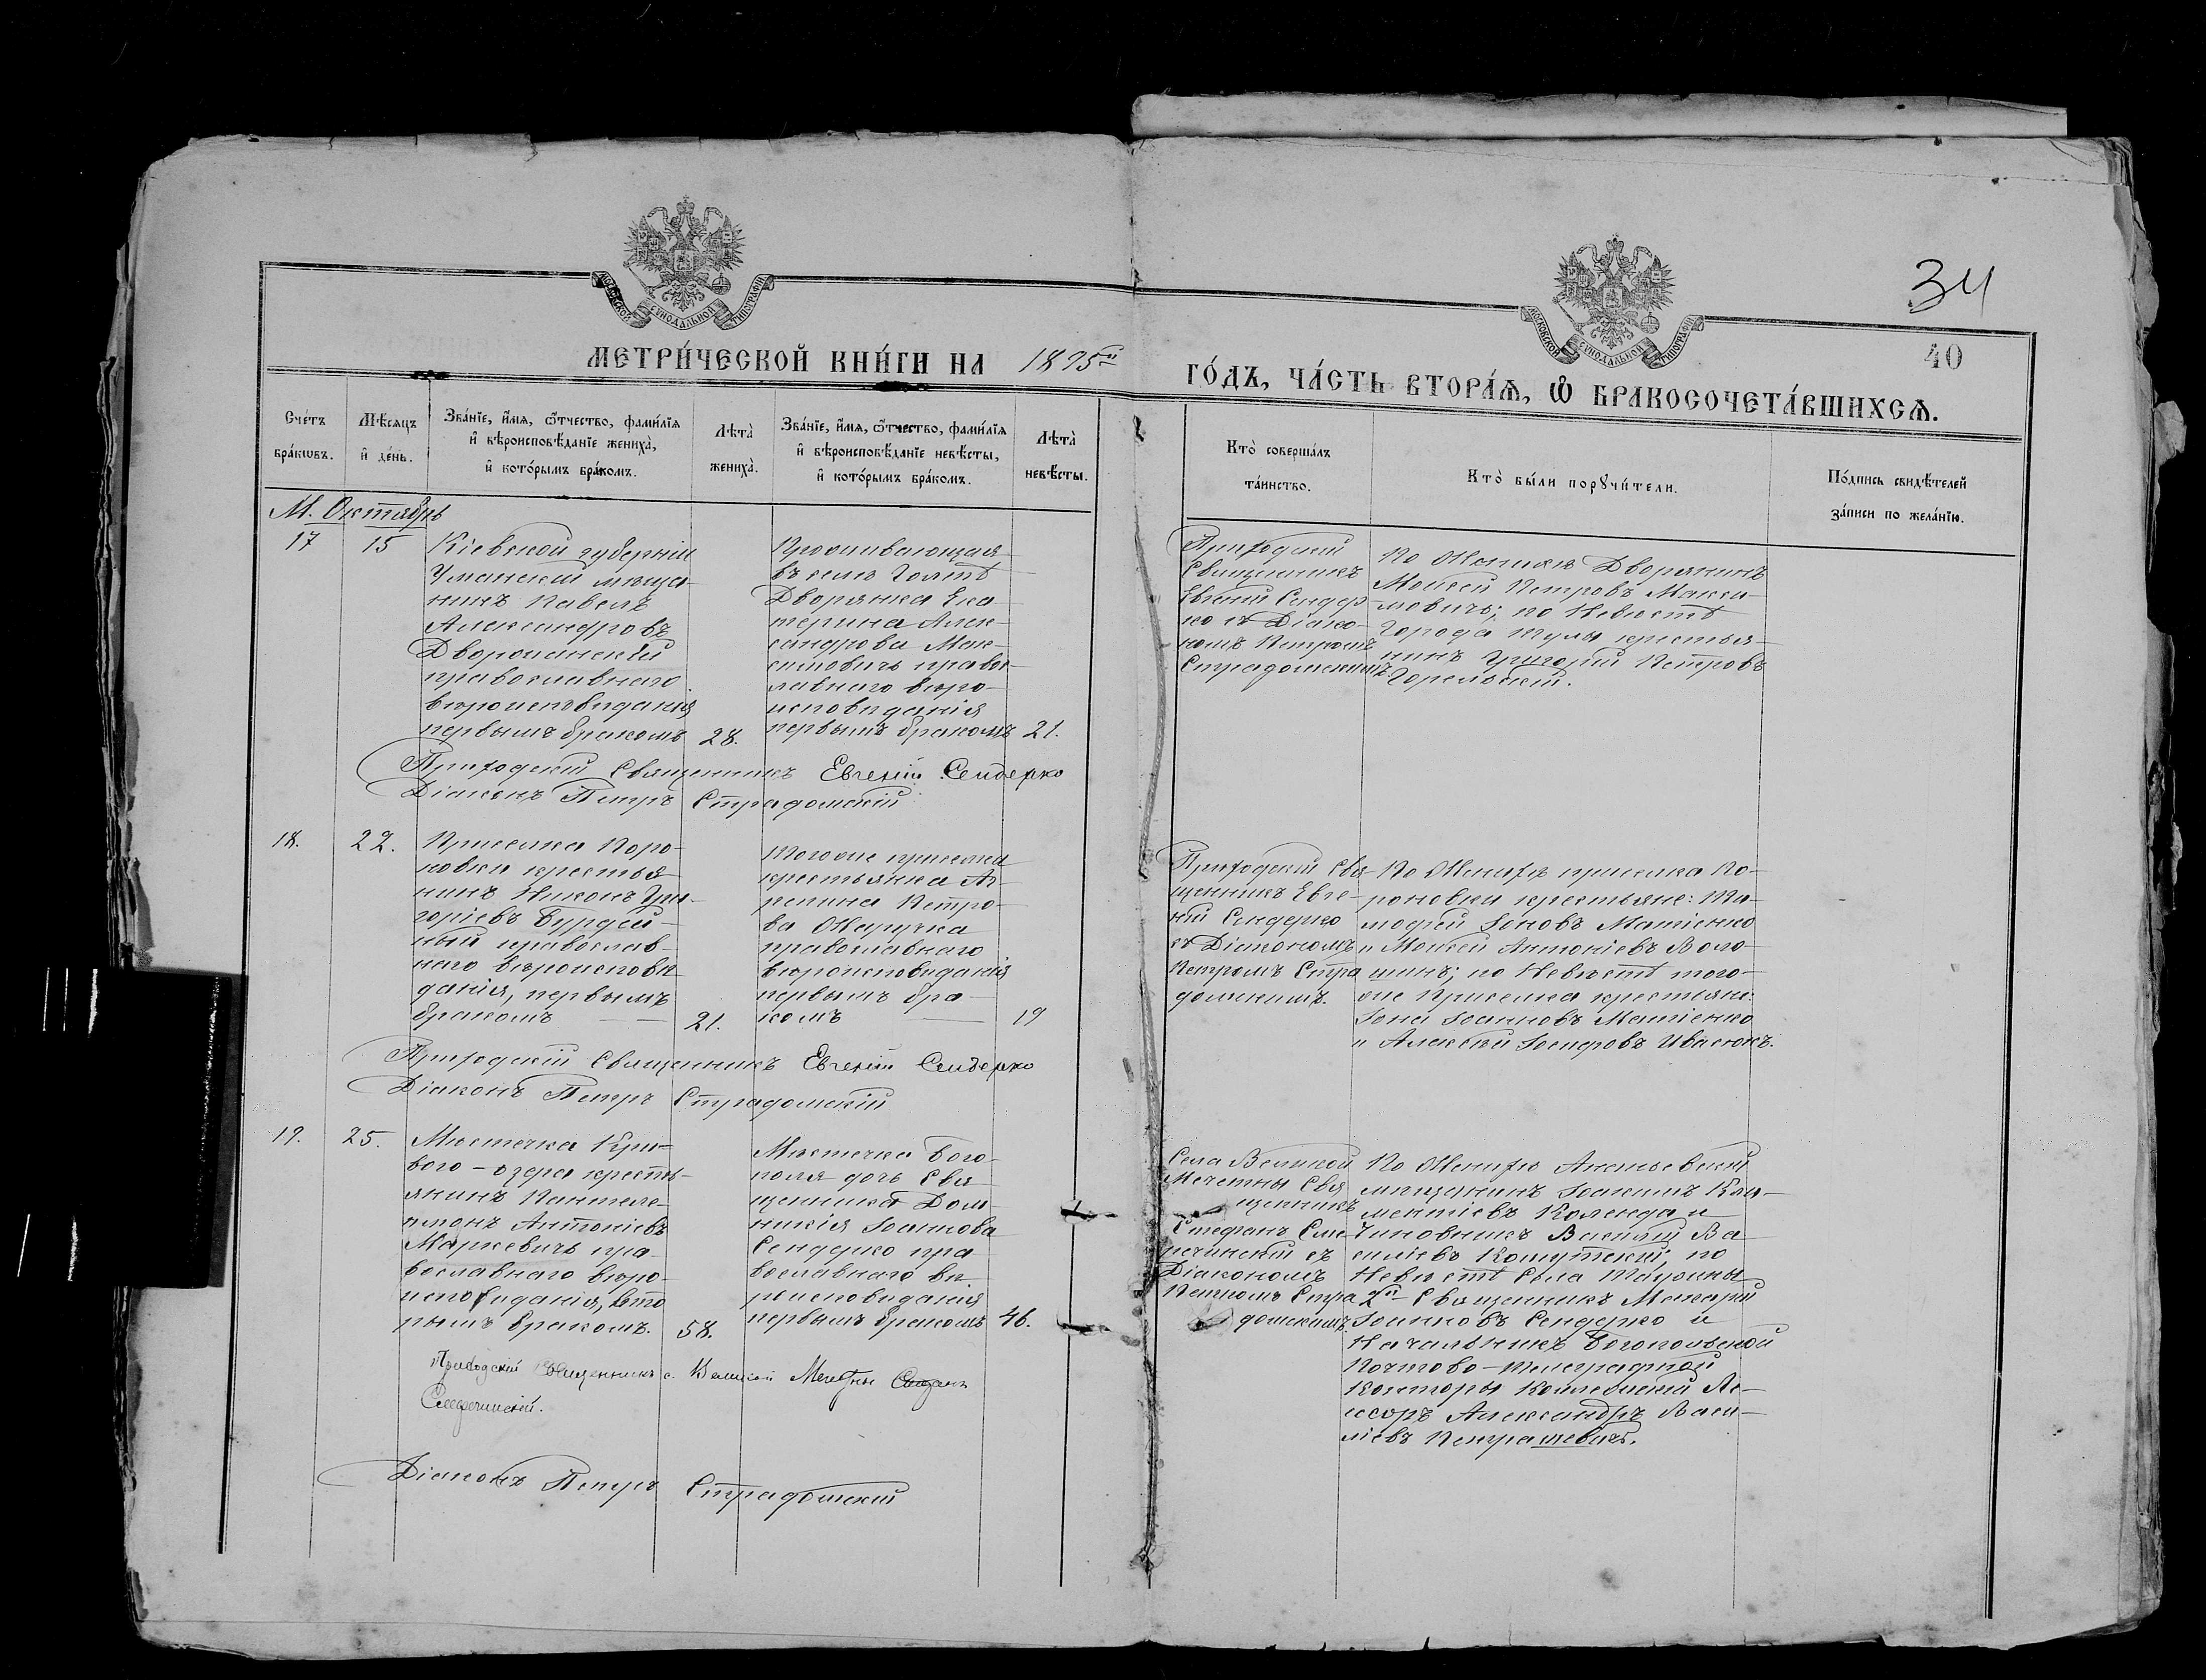 34
40
МОСКОВСКОЙ СѴНОДАЛЬНОЙ ТИПОГРАФІИ
МОСКОВСКОЙ СѴНОДАЛЬНОЙ ТИПОГРАФІИ
МЕТРИ́ЧЕСКОЙ КНИ́ГИ НА 1895й
ГО́ДЪ, ЧА́СТЬ ВТОРА́Ѧ, Ѽ БРАКОСОЧЕТА́ВШИХСѦ.
Сче́тъ
бра́кѡвъ.
Мѣ́сяцъ
и҆ де́нь.
Зва́нїе, и҆́мя, ѻ҆́тчество, фами́лїя
и҆ вѣроисповѣ́данїе жениха̀,
и҆ кото́рымъ бра́комъ.
Лѣта̀
жениха̀.
Зва́нїе, и҆́мя, ѻ҆́тчество, фами́лїя
и҆ вѣроисповѣ́данїе невѣ́сты,
и҆ кото́рымъ бра́комъ.
Лѣта̀
невѣ́сты.
Кто̀ соверша́лъ
та́инство.
Кто̀ бы́ли порꙋчи́тели.
По́дпись свидѣ́телей
за́писи по жела́нїю.
М. Октябрь
17
15
Кіевской губерніи
Уманскій мѣща-
нинъ Павелъ
Александровъ
Дворчанскій
православнаго
вѣроисповѣданія
первымъ бракомъ
28.
Проживающая
въ селѣ Голтѣ
Дворянка Ека-
терина Алек-
сандрова Мак-
симовичъ правос-
лавнаго вѣро-
исповѣданія
первымъ бракомъ
21.
Приходскій
Священникъ
Евгеній Сендер-
ко съ Діако-
номъ Петромъ
Страдомскимъ
По Женихѣ Дворянинъ
Моисей Петровъ Макси-
мовичъ; по Невѣстѣ
Города Тулы крестья-
нинъ Григорій Петровъ
Горельскій.
Приходскій Священникъ Евгеній Сендерко
Діаконъ Петръ Страдомскій
18.
22.
Приселка Коро-
новки крестья-
нинъ Никонъ Гри-
горіевъ Бурдей-
ный православ-
наго вѣроисповѣ-
данія, первымъ
бракомъ
21.
Того же приселка
крестьянка Аг-
репина Петро-
ва
православнаго
вѣроисповѣданія
первымъ бра-
комъ
19
Приходскій Свя-
щенникъ Евге-
ній Сендерко
съ Діакономъ
Петромъ Стра
домскимъ.
По Женихѣ приселка Ко-
роновки крестьяне: Ти-
мофей Іоновъ Матіенко
и Моисей Антоніевъ Воло-
шинъ; по Невѣстѣ того-
же Приселка крестьяне:
Іона Іоанновъ Матіенко
и Алексѣй Іосифовъ Ивасюкъ.
Приходскій Священникъ Евгеній Сендерко
Діаконъ Петръ Страдомскій
19.
25.
Мѣстечка Кри-
вого-озера кресть-
янинъ Пантеле-
имонъ Антоніевъ
Маркевичъ пра-
вославнаго вѣро-
исповѣданія, вто
рымъ бракомъ.
58.
Мѣстечка Бого-
поля дочь Свя-
щенника Дом-
никія Іоаннова
Сендерко пра
вославнаго вѣ-
роисповѣданія
первымъ бракомъ
46.
Села Великой
Мечетны Свя
щенникъ
Стефанъ Сме-
речинскій съ
Діакономъ
Петромъ Стра
домскимъ
По Женихѣ Ананьевскій
мѣщанинъ Іоакимъ Кли-
ментіевъ Коленда и
Чиновникъ Василій Ва-
силіевъ; по
Невѣстѣ Села Таужны
2й Священникъ Макарій
Іоанновъ Сендерко и
Начальникъ Богопольской
Почтово-Телеграфной
Конторы Коллежскій Ас-
сесоръ Александръ Васи-
ліевъ Петрашевичъ.
Приходскій Священникъ с. Великой Мечетны Стефанъ
Смеречинскій.
Діаконъ Петръ Страдомскій